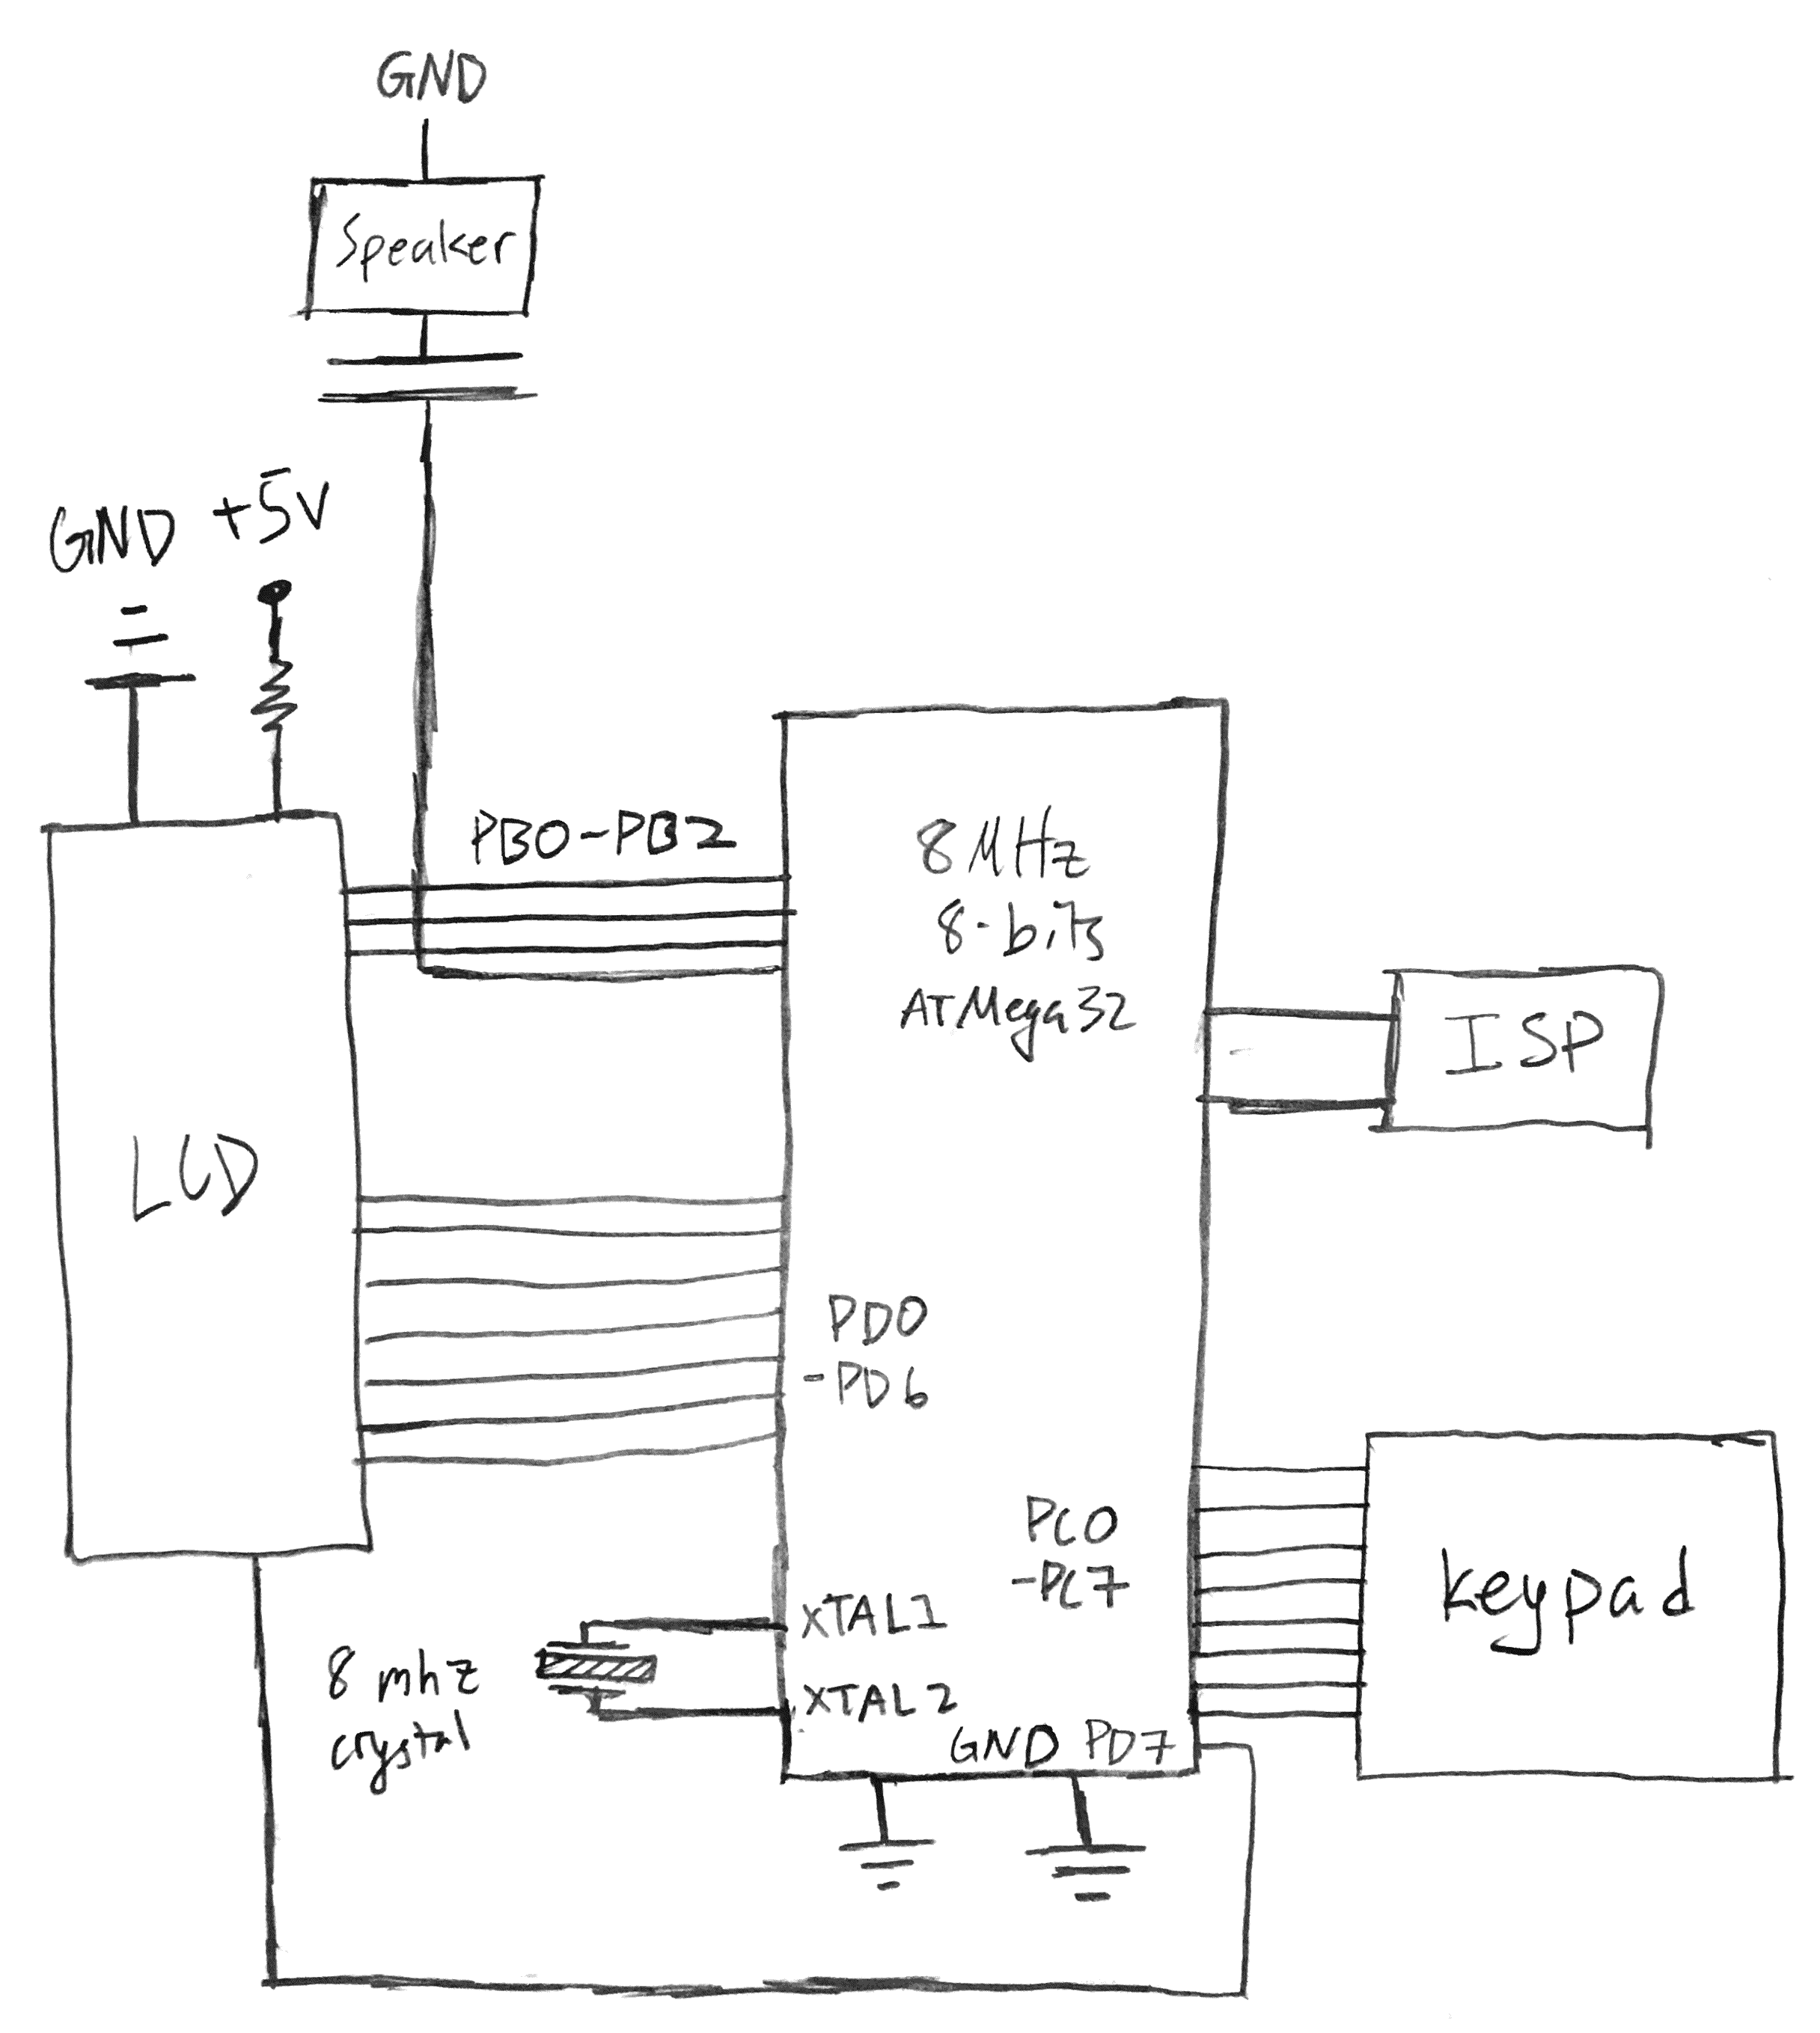 GND
Speaker
GND +5V
PB0-PB2
8MHz
8-bits
ATMega32
ISP
LCD
PD0
-PD6
PC0
-PC7
keypad
XTAL1
8 mhz
crystal
XTAL2
GND PD7